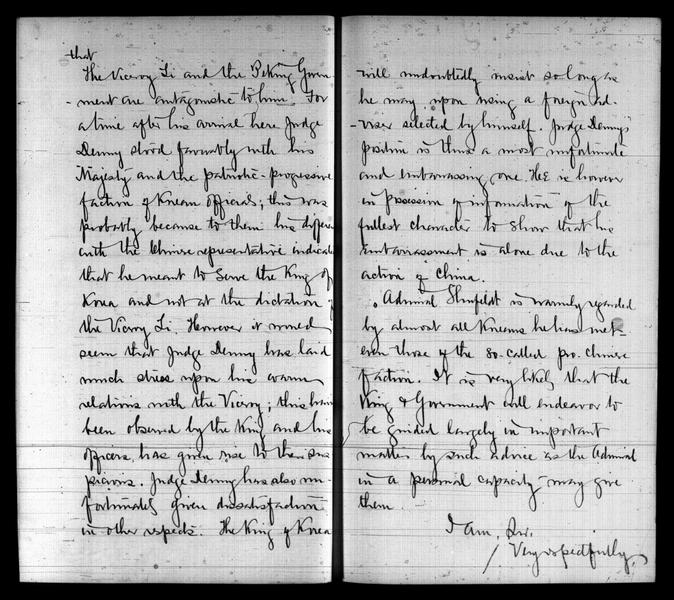 that
The Viceroy Li and the Peking Govern
-ment are antagonistic to him. For
a time after his arrival here Judge
Denny stood favorably with his
Majesty and the patriotic-progressive
faction of Korean officials; this was
probably because to them his differ
with the Chinese representative indicate
that he meant to serve the King of
Korea and not at the dictation
the Viceroy Li. However it would
seem that Judge Denny has laid
much stress upon his warm
relations with the Viceroy; this having
been observed by the King and his
officers has given rise to their sus
picions. Judge Denny has also un-
fortunately given dissatisfaction
in other respects. The King of Korea
will undoubtedly insist so long as
he may upon using a foreign ad-
-viser selected by himself. Judge Denny's
position is thus a most unfortunate
and embarrassing one. He is however
in possession of information of the
fullest character to show that his
embarrassment is alone due to the
action of China.
Admiral Shufeldt is warmly regarded
by almost all Koreans he has met-
even those of the so-called pro-Chinese
faction. It is very likely that the
King & Government will endeavor to
be guided largely in important
matters by such advice as the Admiral
in a personal capacity may give
them.
I am, Sir.
Very respectfully,